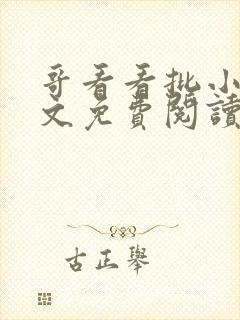 哥看看批小
文免費閱讀
古正舉